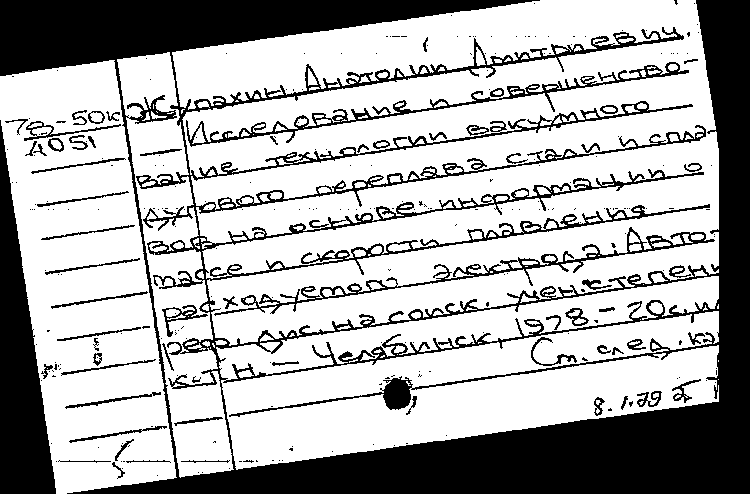 Жупахин, Анатолий Дмитриевич.
78-50к
4051
Исследование и совершенство-
вание технологии вакуумного
дугового переплава стали и спла-
вов на основе информации о
массе и скорости плавления
расходуемого электрода: Авто-
реф. дис. на соиск. учен. степени
к.т.н. - Челябинск, 1978. - 20с., ил
См. след. ка
8.1.79